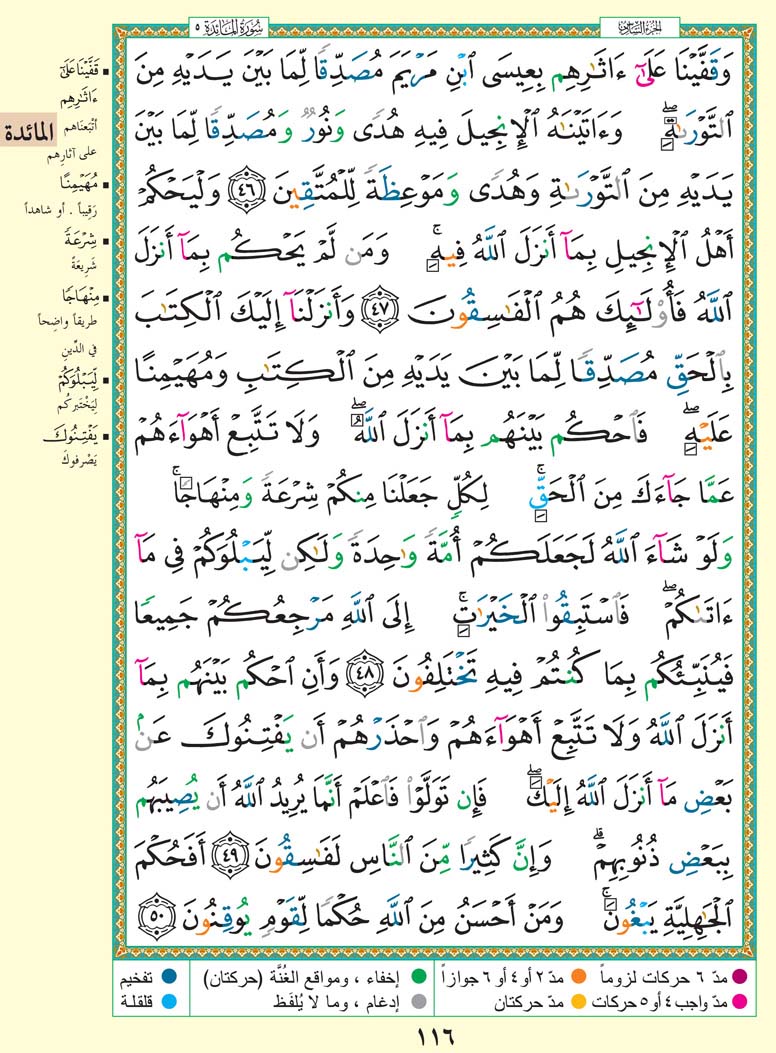 سُورَةُ المَائِدَة ٥
الجُزءُ السَّادِسُ
وَقَفَّيْنَا عَلَىٰٓ ءَاثَٰرِهِم بِعِيسَى ٱبْنِ مَرْيَمَ مُصَدِّقًا لِّمَا بَيْنَ يَدَيْهِ مِنَ
ٱلتَّوْرَىٰةِۖ وَءَاتَيْنَٰهُ ٱلْإِنجِيلَ فِيهِ هُدًى وَنُورٌ وَمُصَدِّقًا لِّمَا بَيْنَ
يَدَيْهِ مِنَ ٱلتَّوْرَىٰةِ وَهُدًى وَمَوْعِظَةً لِّلْمُتَّقِينَ ٤٦ وَلْيَحْكُمْ
أَهْلُ ٱلْإِنجِيلِ بِمَآ أَنزَلَ ٱللَّهُ فِيهِۚ وَمَن لَّمْ يَحْكُم بِمَآ أَنزَلَ
ٱللَّهُ فَأُو۟لَٰٓئِكَ هُمُ ٱلْفَٰسِقُونَ ٤٧ وَأَنزَلْنَآ إِلَيْكَ ٱلْكِتَٰبَ
بِٱلْحَقِّ مُصَدِّقًا لِّمَا بَيْنَ يَدَيْهِ مِنَ ٱلْكِتَٰبِ وَمُهَيْمِنًا
عَلَيْهِۖ فَٱحْكُم بَيْنَهُم بِمَآ أَنزَلَ ٱللَّهُۖ وَلَا تَتَّبِعْ أَهْوَآءَهُمْ
عَمَّا جَآءَكَ مِنَ ٱلْحَقِّۚ لِكُلٍّ جَعَلْنَا مِنكُمْ شِرْعَةً وَمِنْهَاجًاۚ
وَلَوْ شَآءَ ٱللَّهُ لَجَعَلَكُمْ أُمَّةً وَٰحِدَةً وَلَٰكِن لِّيَبْلُوَكُمْ فِى مَآ
ءَاتَىٰكُمْۖ فَٱسْتَبِقُوا۟ ٱلْخَيْرَٰتِۚ إِلَى ٱللَّهِ مَرْجِعُكُمْ جَمِيعًا
فَيُنَبِّئُكُم بِمَا كُنتُمْ فِيهِ تَخْتَلِفُونَ ٤٨ وَأَنِ ٱحْكُم بَيْنَهُم بِمَآ
أَنزَلَ ٱللَّهُ وَلَا تَتَّبِعْ أَهْوَآءَهُمْ وَٱحْذَرْهُمْ أَن يَفْتِنُوكَ عَنۢ
بَعْضِ مَآ أَنزَلَ ٱللَّهُ إِلَيْكَۖ فَإِن تَوَلَّوْا۟ فَٱعْلَمْ أَنَّمَا يُرِيدُ ٱللَّهُ أَن يُصِيبَهُم
بِبَعْضِ ذُنُوبِهِمْۗ وَإِنَّ كَثِيرًا مِّنَ ٱلنَّاسِ لَفَٰسِقُونَ ٤٩ أَفَحُكْمَ
ٱلْجَٰهِلِيَّةِ يَبْغُونَۚ وَمَنْ أَحْسَنُ مِنَ ٱللَّهِ حُكْمًا لِّقَوْمٍ يُوقِنُونَ ٥٠
المائدة
▪ قَفَّيْنَا عَلَىٰٓ
ءَاثَٰرِهِم
أتْبَعْناهم
على آثارِهم
▪ مُهَيْمِنًا
رَقِيباً . أو شاهداً
▪ شِرْعَةً
شَرِيعَةً
▪ مِنْهَاجًا
طريقاً واضِحاً
في الدِّينِ
▪ لِّيَبْلُوَكُمْ
لِيَخْتَبِركُم
▪ يَفْتِنُوكَ
يَصْرِفوكَ
● مدّ ٦ حركات لزوماً ● مدّ ٢ أو ٤ أو ٦ جوازاً ● إخفاء ، ومواقع الغُنَّة (حركتان) ● تفخيم
● مدّ واجب ٤ أو ٥ حركات ● مدّ حركتان ● إدغام ، وما لا يُلفَظ ● قلقلة
١١٦